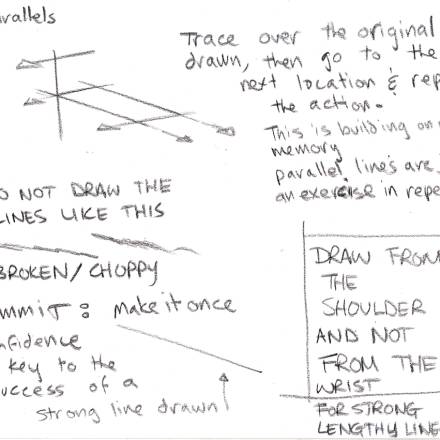 arallels
Trace over the original
drawn, then go to the
next location & rep
the action.
This is building on
memory
parallel lines are
an exercise in repe
O NOT DRAW THE
LINES LIKE THIS
BROKEN/CHOPPY
mmit: make it once
nfidence
key to the
uccess of a
strong line drawn
DRAW FROM
THE
SHOULDER
AND NOT
FROM THE
WRIST
FOR STRONG
LENGTHY LINE